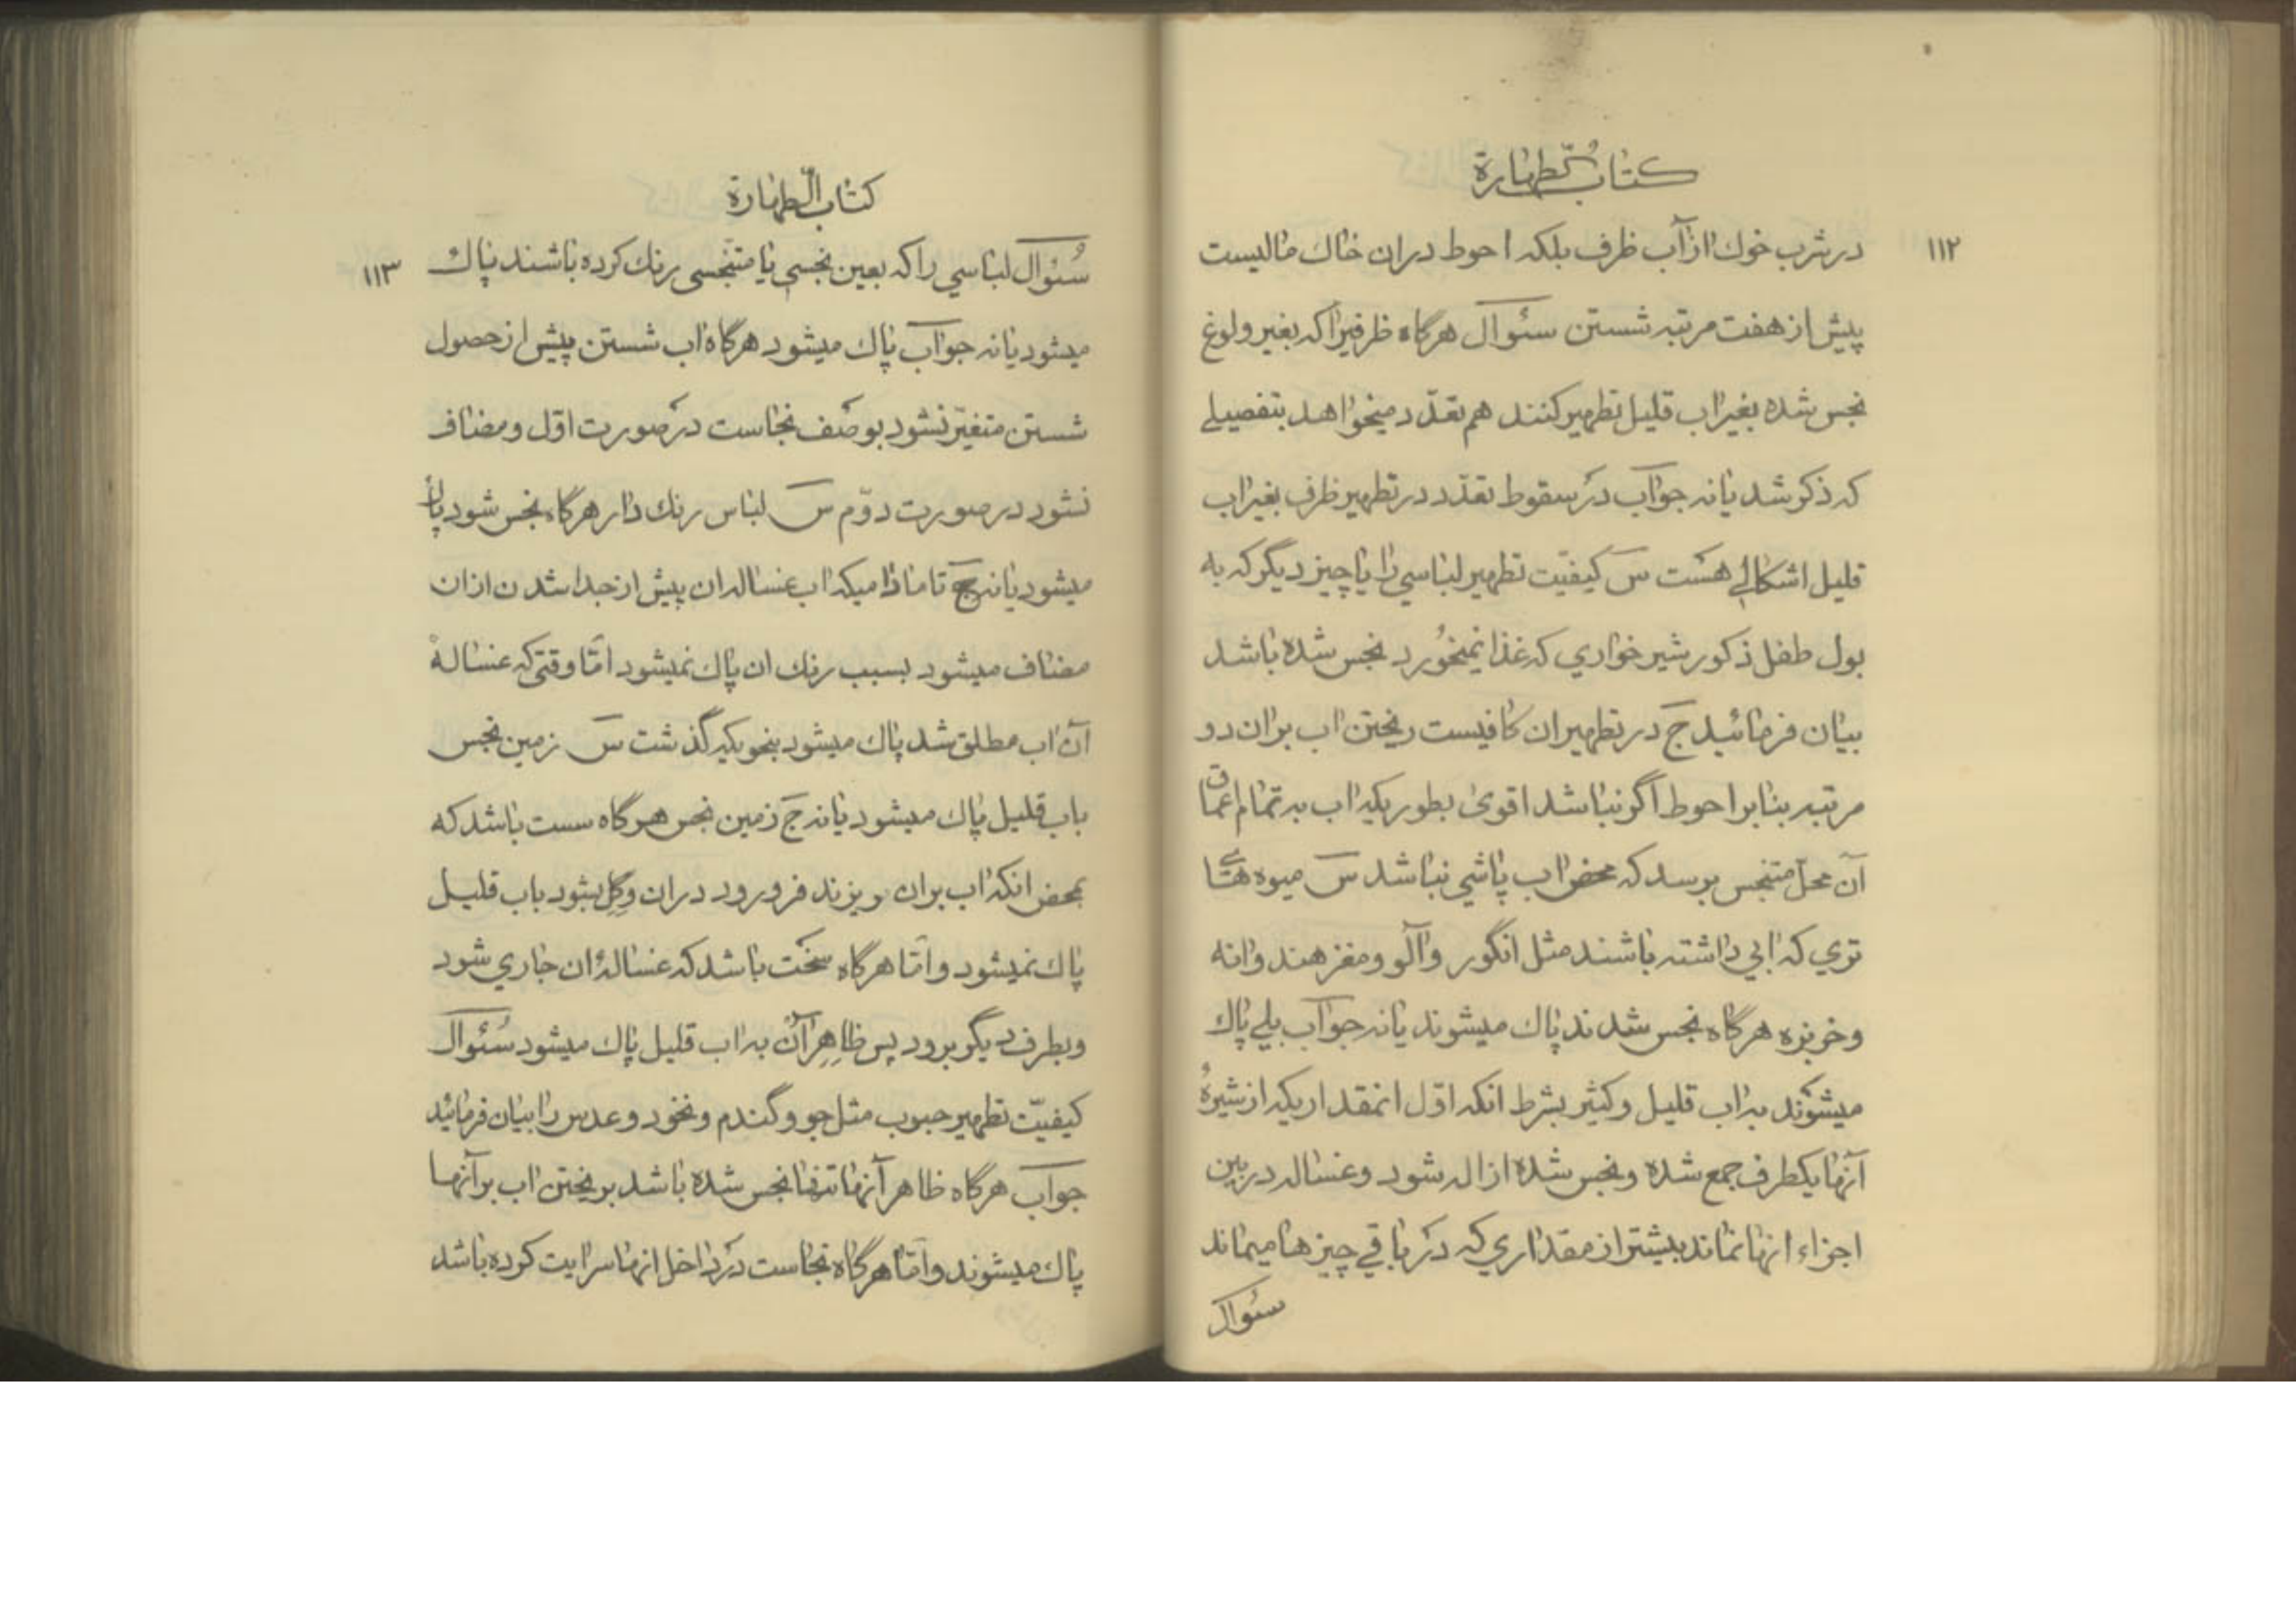 كتاب الطهارة
١١٢
در شرب خوك از آب ظرف بلكه احوط در ان خاك ماليست
پيش از هفت مرتبه شستن سئوال هرگاه ظرفيرا كه بغير ولوغ
نجس شده بغير اب قليل تطهير كنند هم تعدّد ميخواهد بتفصيلے
كه ذكر شد يا نه جواب در سقوط تعدّد در تطهير ظرف بغير اب
قليل اشكالے هست س كيفيّت تطهير لباسي را يا چيز ديگر كه به
بول طفل ذكور شير خواري كه غذا نميخُورد نجس شده باشد
بيان فرمائيد ج در تطهير ان كافيست ريختن اب بر ان دو
مرتبه بنا بر احوط اگر نباشد اقوى بطوريكه اب به تمام اعماق
آن محلّ متنجس برسد كه محض اب پاشي نباشد س ميوه هائے
تري كه ابي داشته باشند مثل انگور و آلو و مغز هندوانه
و خربزه هرگاه نجس شدند پاك ميشوند يا نه جواب بلي پاك
ميشوند به اب قليل و كثير بشرط انكه اوّل انمقداريكه از شيرهٔ
آنها يكطرف جمع شده و نجس شده ازاله شود و غساله در بين
اجزاء انها نماند بيشتر از مقداري كه در باقي چيزها ميماند
سئوال
كتاب الطهارة
١١٣
سُئوال لباسي را كه بعين نجسي يا متنجسى رنك كرده باشند پاك
ميشود يا نه جواب پاك ميشود هرگاه اب شستن پيش از حصول
شستن متغيّر نشود بوصف نجاست در صورت اوّل و مضاف
نشود در صورت دوّم س لباس رنك دار هرگاه نجس شود پاك
ميشود يا نه ج تا ماداميكه اب غساله ان پيش از جدا شدن از ان
مضاف ميشود بسبب رنك ان پاك نميشود امّا وقتى كه غسالهٔ
آن اب مطلق شد پاك ميشود بنحويكه گذشت س زمين نجس
باب قليل پاك ميشود يا نه ج زمين نجس هرگاه سست باشد كه
بمحض انكه اب بر ان بريزند فرو رود در ان و گِل بشود باب قليل
پاك نميشود و امّا هرگاه سخت باشد كه غسالهٔ ان جاري شود
و بطرف ديگر برود پس ظاهِرِ آن به اب قليل پاك ميشود سُئوال
كيفيّت تطهير حبوب مثل جو و گندم و نخود و عدس را بيان فرمائيد
جواب هرگاه ظاهر آنها تنها نجس شده باشد بريختن اب بر آنها
پاك ميشوند و امّا هرگاه نجاست در داخل انها سرايت كرده باشد